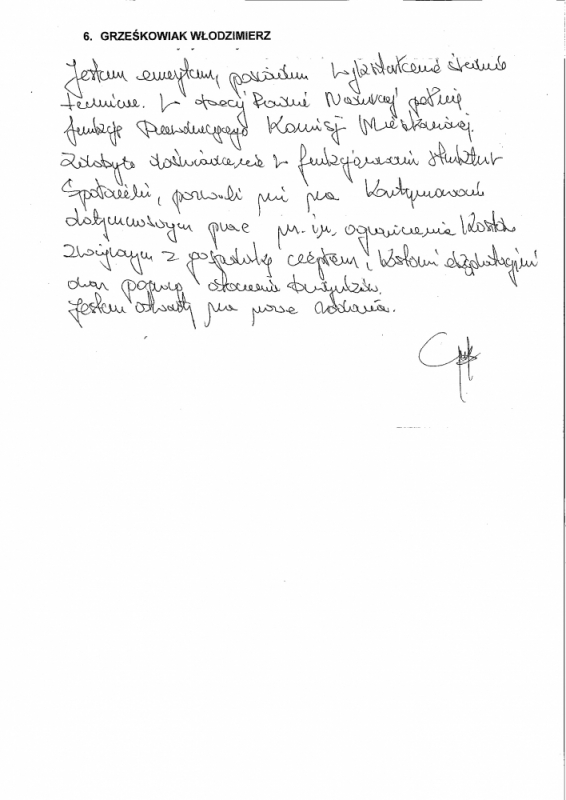 6. GRZEŚKOWIAK WŁODZIMIERZ
Jestem emerytem, posiadam wykształcenie średnie
techniczne. W obecnej Radzie Nadzorczej pełnię
funkcję Przewodniczącego Komisji Mieszkaniowej.
Zdobyte doświadczenie w funkcjonowaniu struktur
Spółdzielni, pozwoli mi na kontynuowanie
dotychczasowych prac m.in. ograniczenia kosztów
związanych z gospodarką cieplną, kosztami eksploatacyjnymi
oraz poprawą budynków.
Jestem otwarty na nowe zadania.